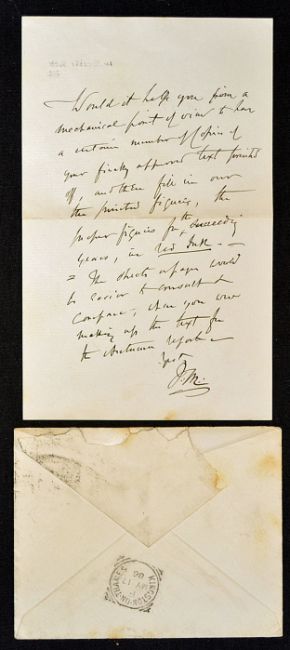 Would it help you from a
mechanical point of view to have
a certain number of copies of
your finally approved text printed
off, and then fill in over
the printed figures, the
proper figures for the succeeding
years, in red Ink. —
= The sheets of paper would
be easier to consult &
compare, when you were
making up the text for
the Autumn
J.M.
KINGSTON-ON-THAMES
MY 17
00